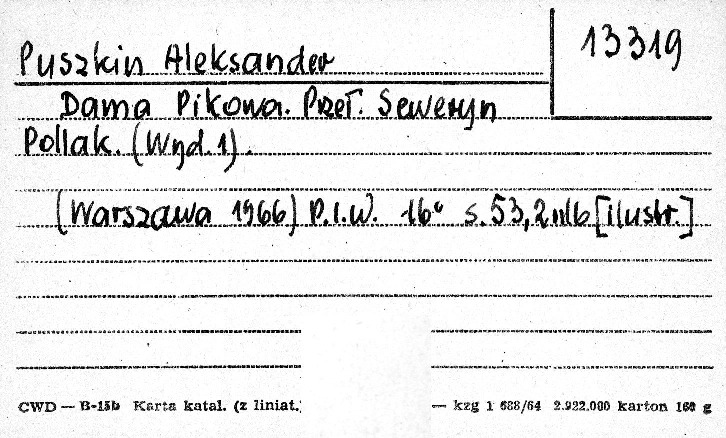 13319
Puszkin Aleksander
Dama Pikowa. Przeł. Seweryn
Pollak. (Wyd. 1).
(Warszawa 1966) P.I.W. 16° s. 53, 2 nlb [ilustr.]
CWD — B-15b Karta katal. (z liniat.) — kzg 1 688/64 2.922.000 karton 160 g